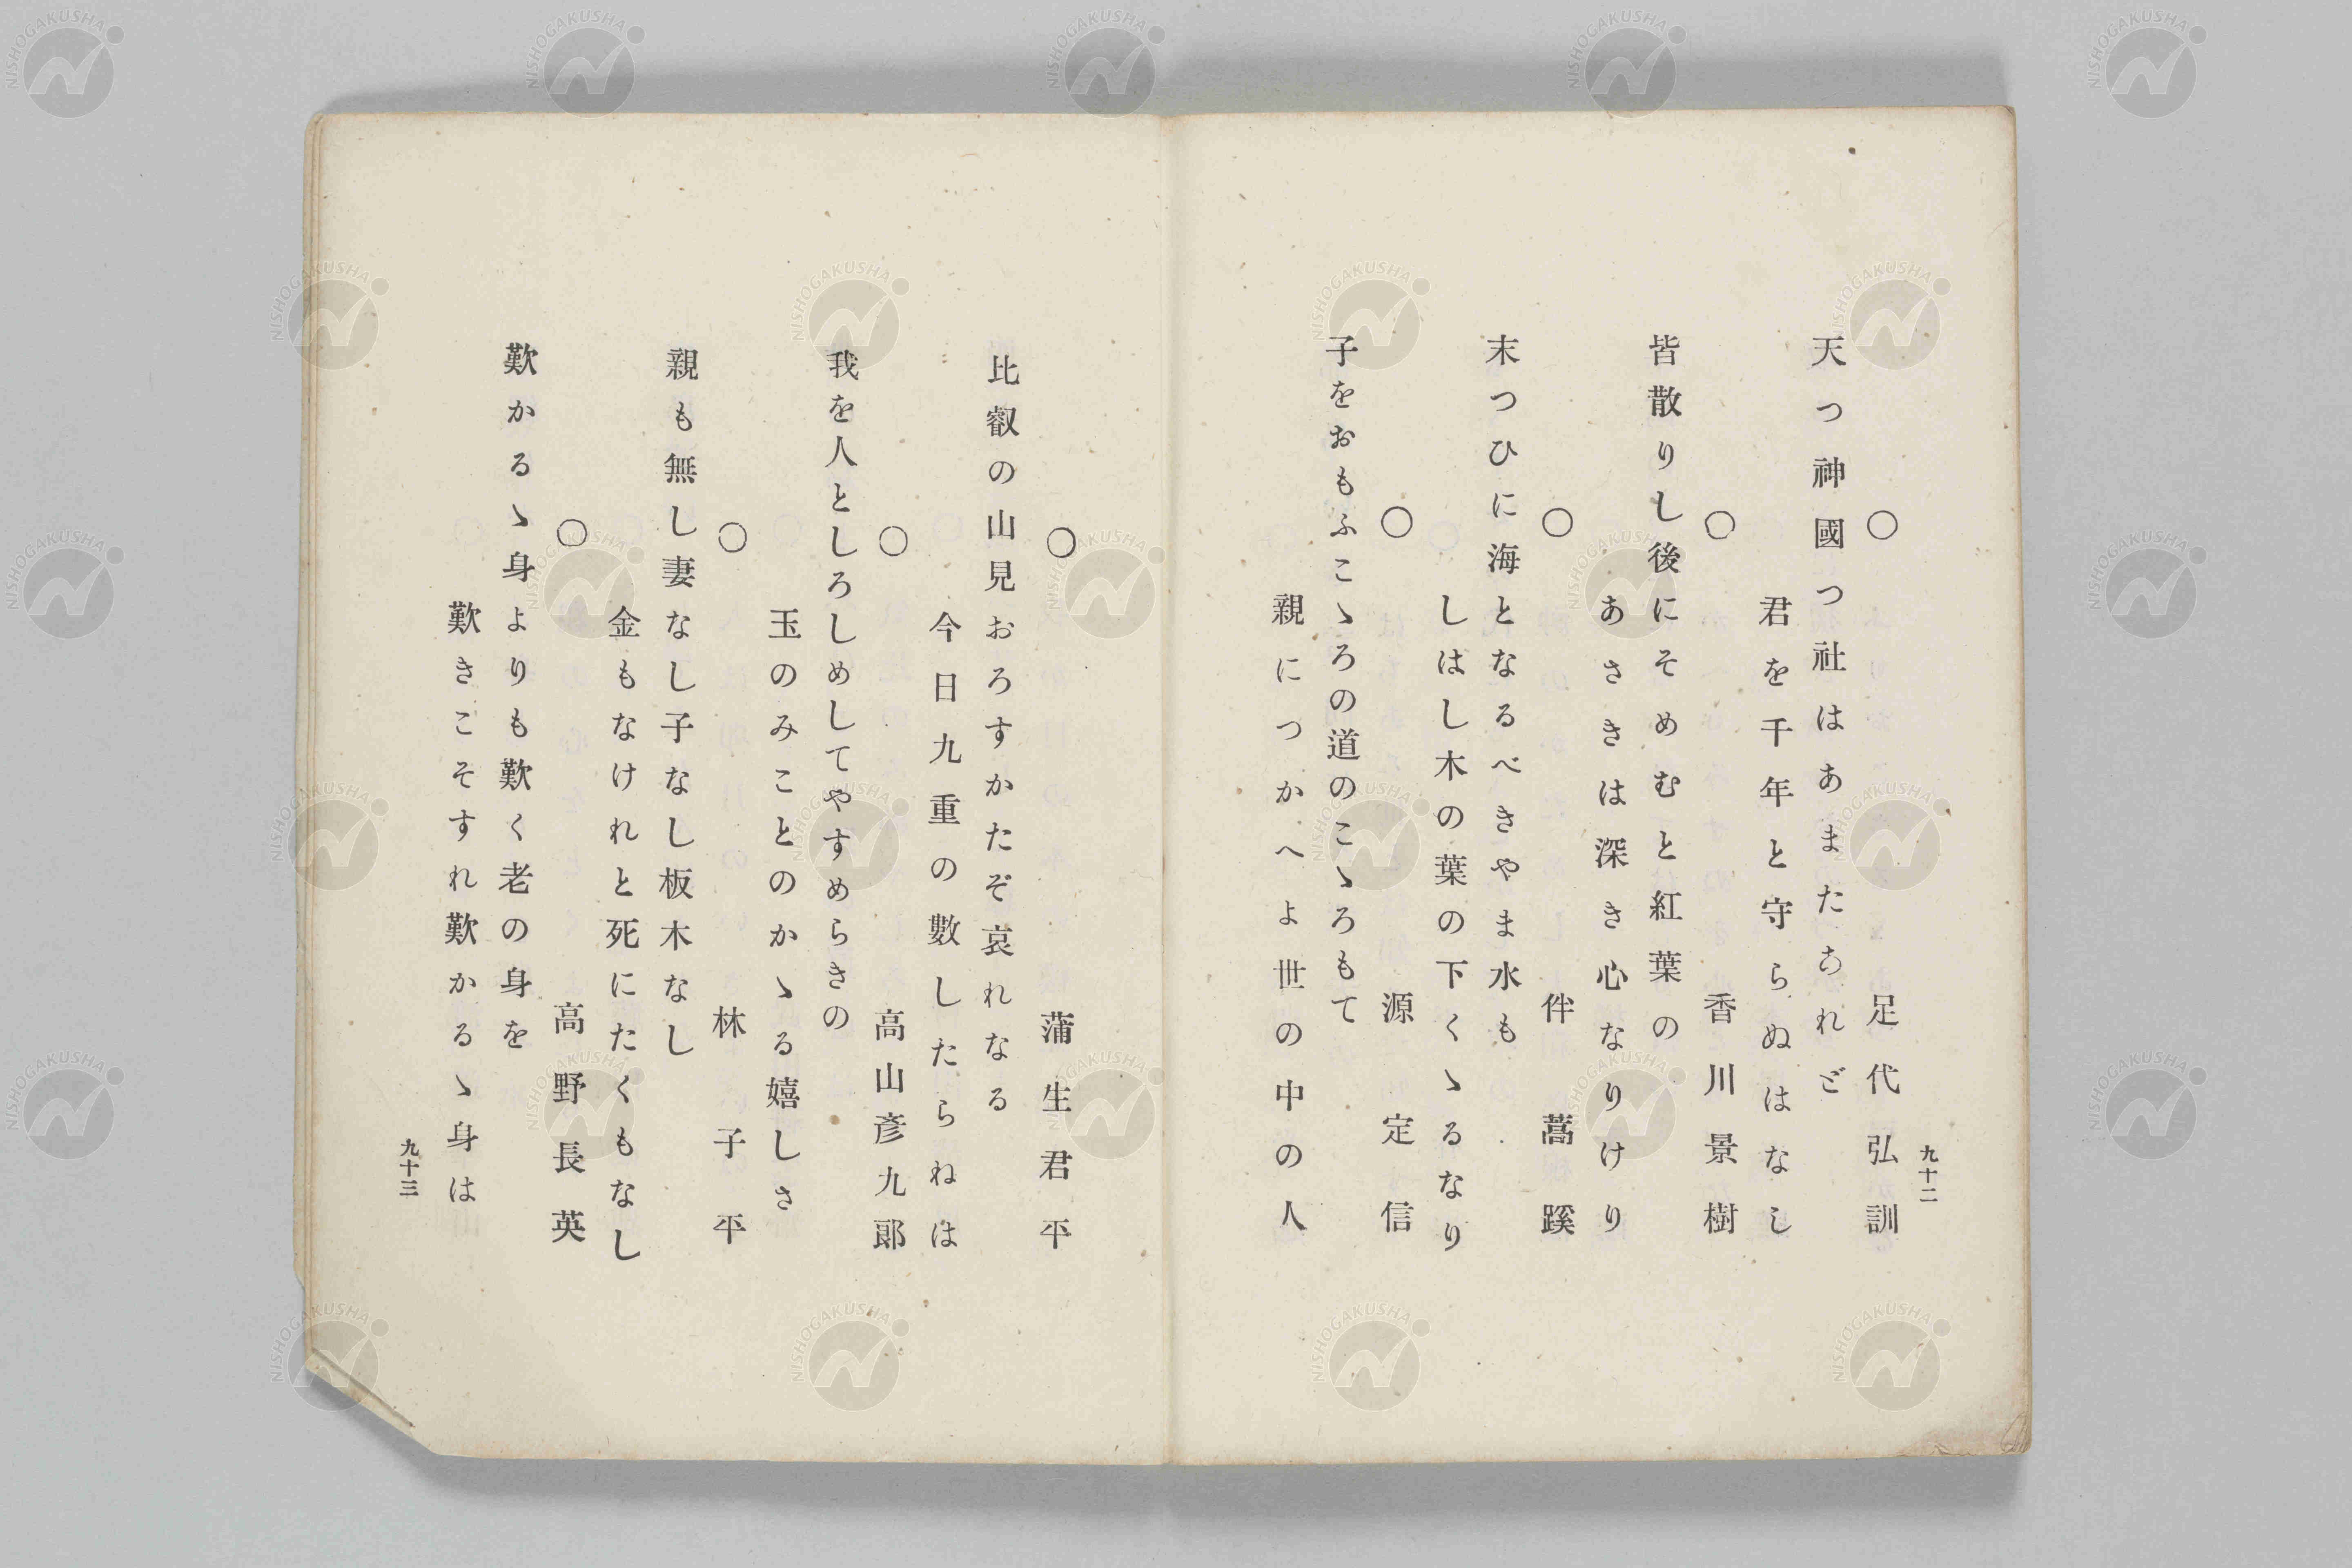 九十二
○ 足代弘訓
天つ神國つ社はあまたあれど
君を千年と守らぬはなし
○ 香川景樹
皆散りし後にそめむと紅葉の
あさきは深き心なりけり
○ 伴蒿蹊
末つひに海となるべきやま水も
しはし木の葉の下くゝるなり
○ 源定信
子をおもふこゝろの道のこゝろもて
親につかへよ世の中の人
○ 蒲生君平
比叡の山見おろすかたぞ哀れなる
今日九重の數したらねは
○ 高山彥九郞
我を人としろしめしてやすめらきの
玉のみことのかゝる嬉しさ
○ 林子平
親も無し妻なし子なし板木なし
金もなけれと死にたくもなし
○ 高野長英
歎かるゝ身よりも歎く老の身を
歎きこそすれ歎かるゝ身は
九十三
NISHOGAKUSHA